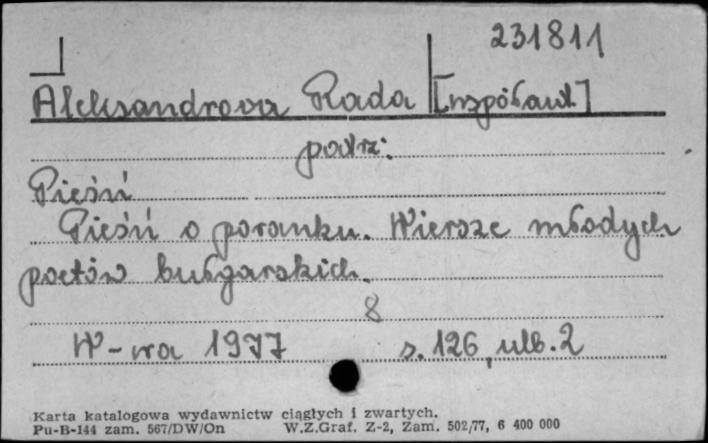 231811
Aleksandrova Rada [współaut.]
patrz:
Pieśń
Pieśń o poranku. Wiersze młodych
poetów bułgarskich.
8
W-wa 1977 s. 126, ulb. 2
Karta katalogowa wydawnictw ciągłych i zwartych.
Pu-B-144 zam. 567/DW/On W.Z.Graf. Z-2, Zam. 502/77, 6 400 000